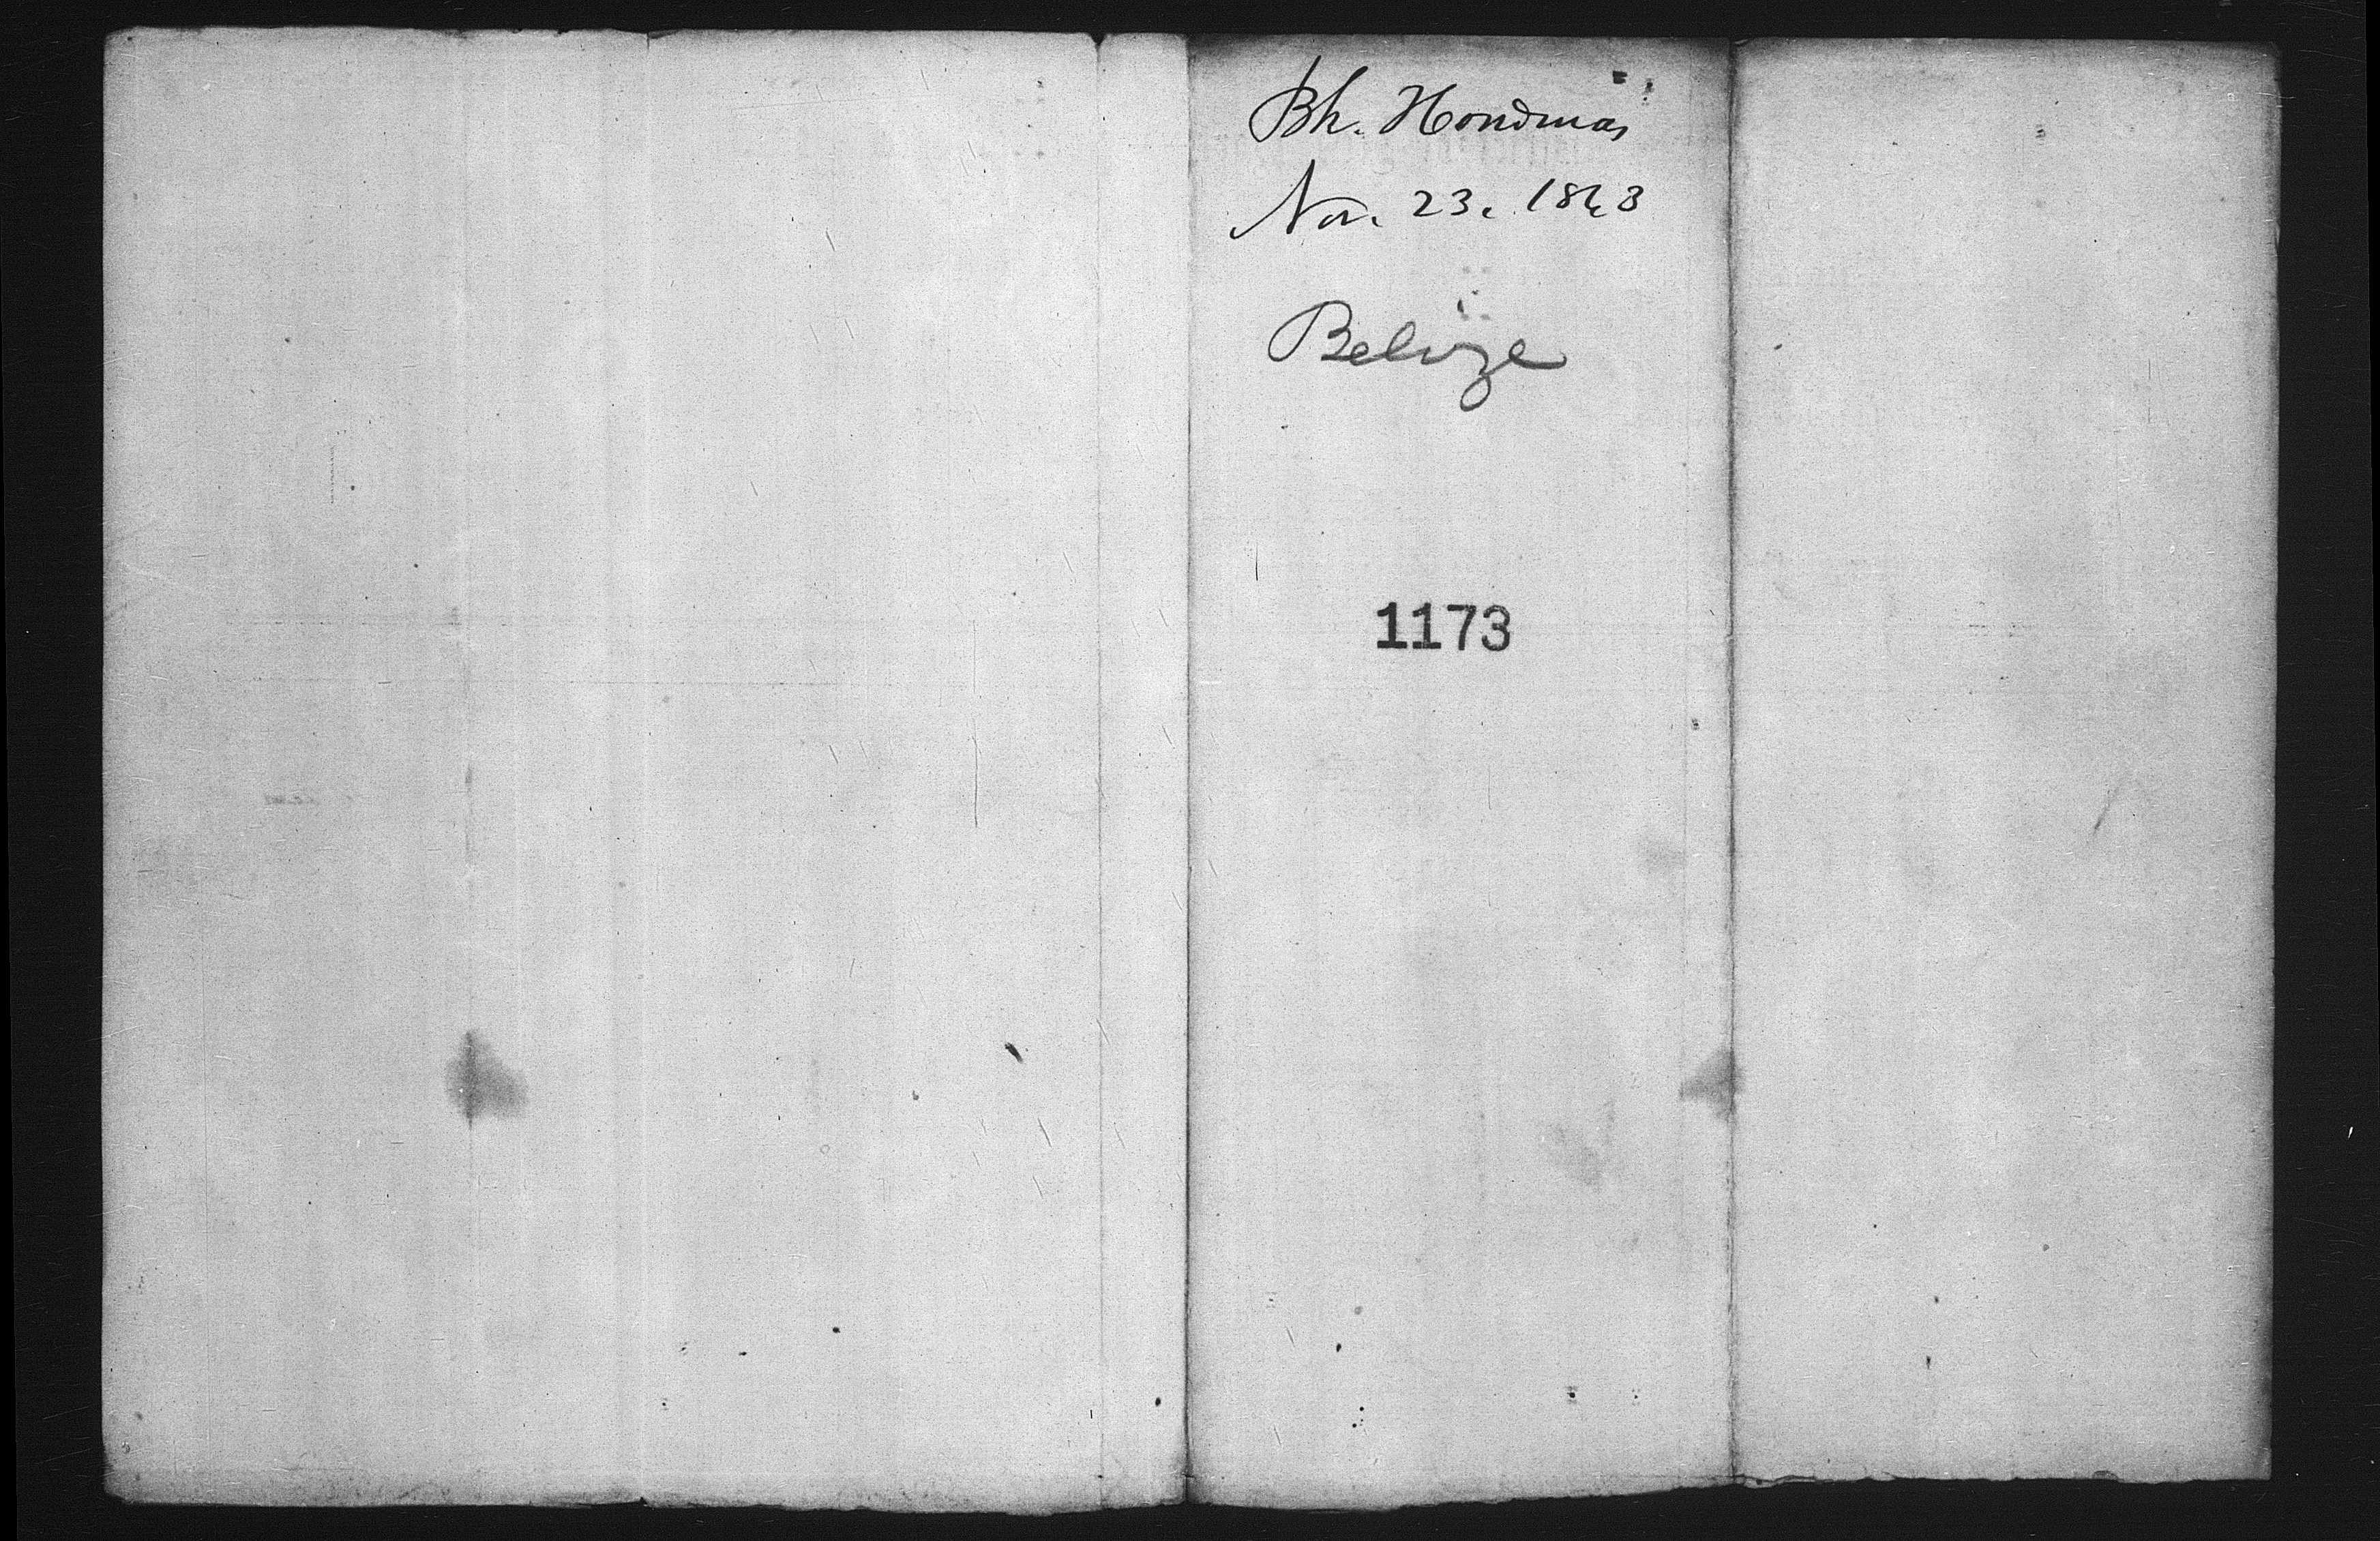 Bh. Honduras
Nov. 23. 1863
Belize
1173